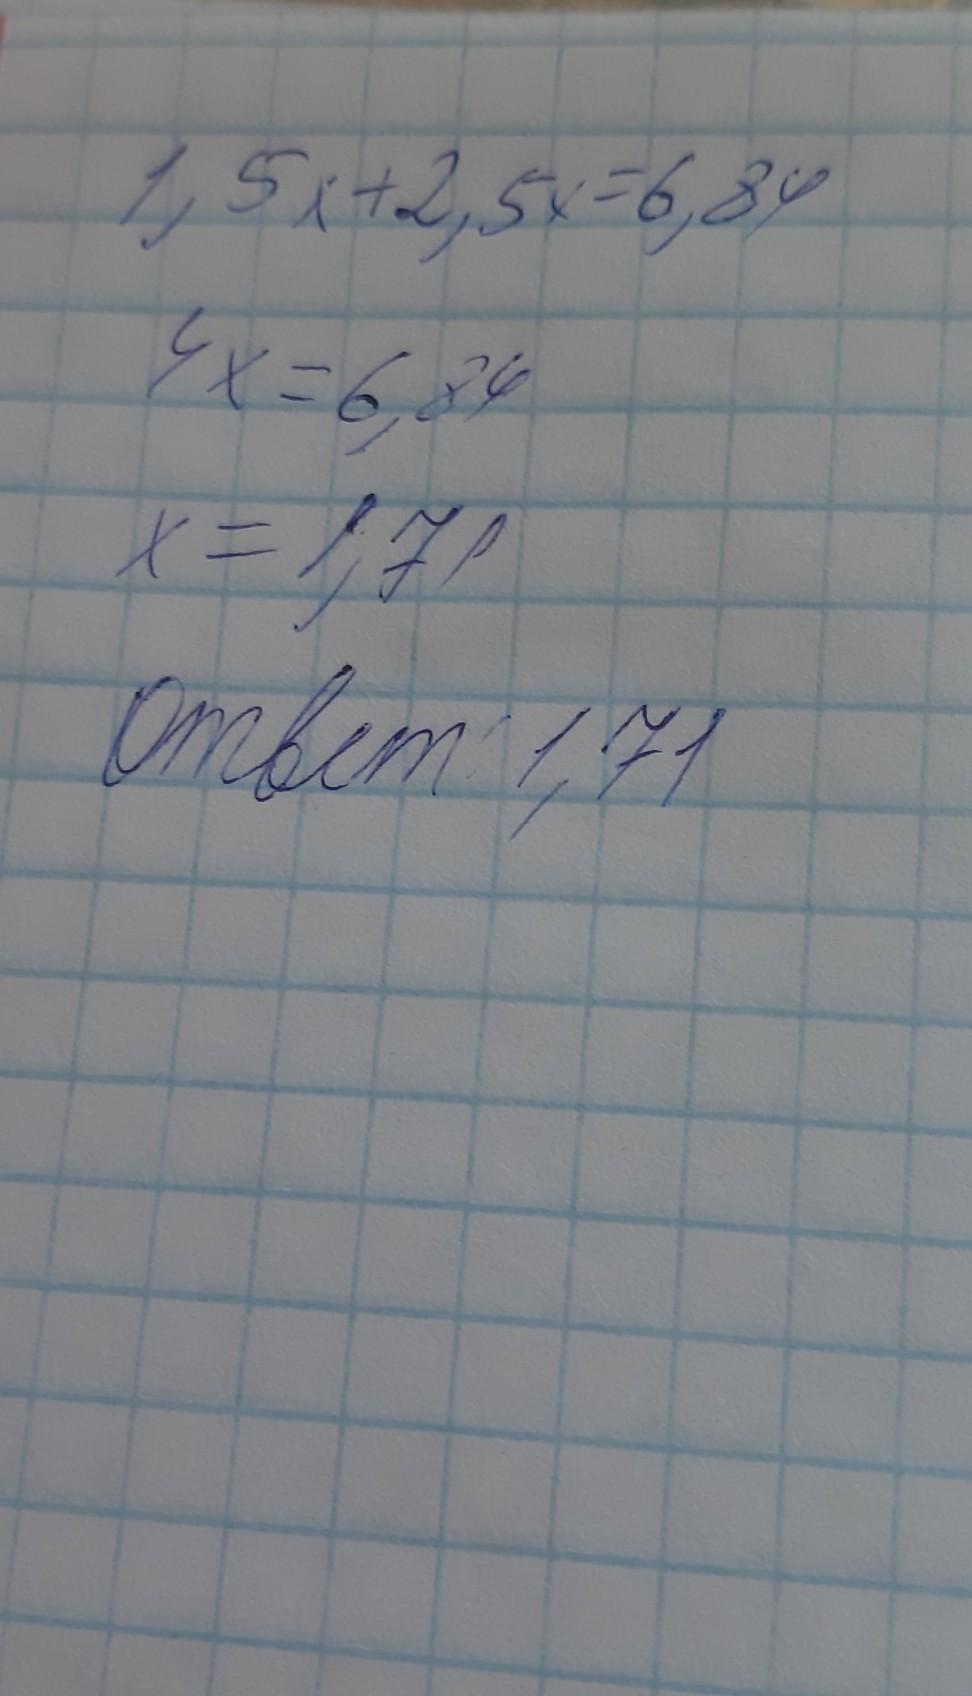 1,5x+2,5x=6,84
4x=6,84
x=1,71
Ответ: 1,71